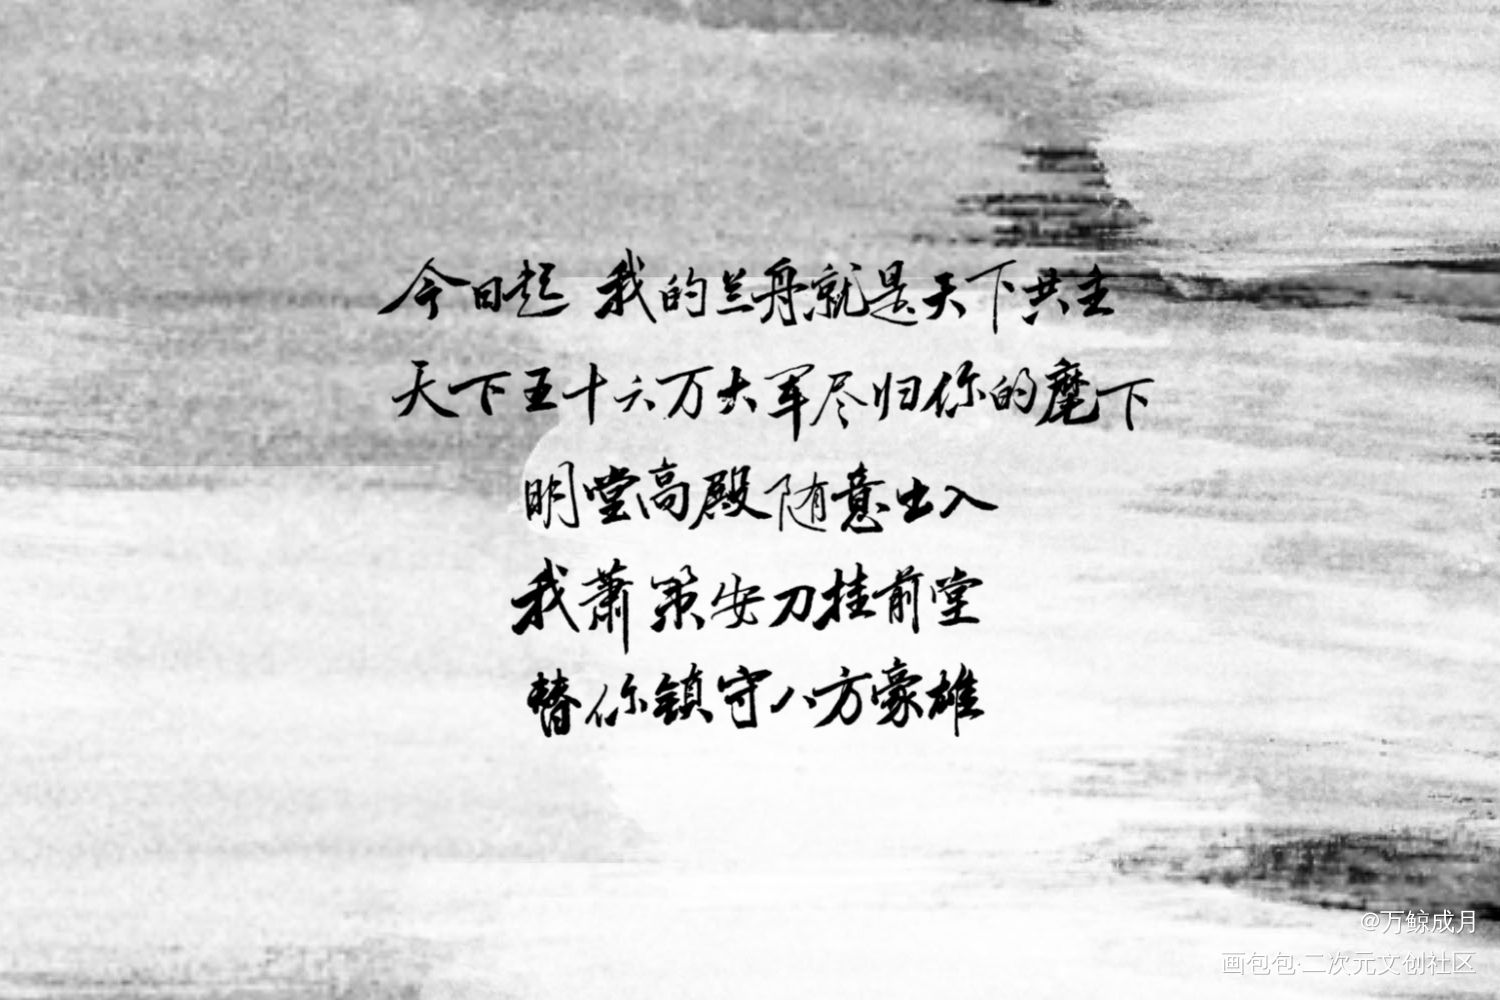 今日起 我的兰舟就是天下共主
天下五十六万大军尽归你的麾下
明堂高殿随意出入
我萧策安刀挂前堂
替你镇守八方豪雄
@万鲸成月
画包包·二次元文创社区